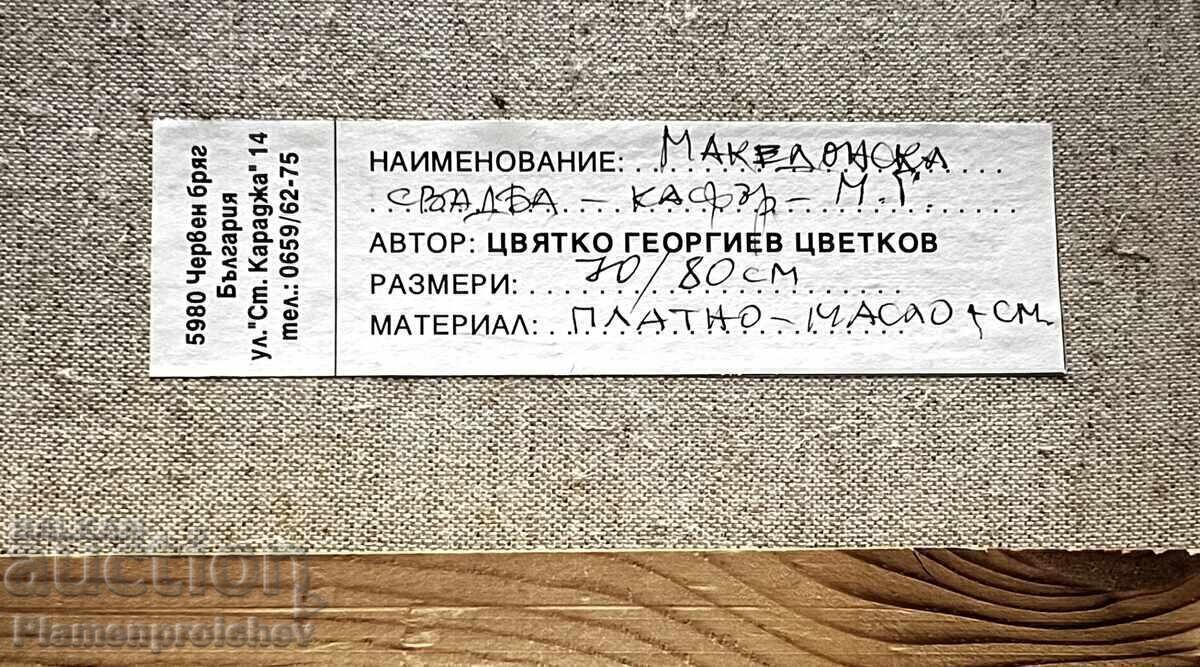 5980 Червен бряг
България
ул."Ст. Караджа" 14
тел.: 0659/62-75
НАИМЕНОВАНИЕ: МАКЕДОНСКА
СВАДБА – КАФЪР – М.Г.
АВТОР: ЦВЯТКО ГЕОРГИЕВ ЦВЕТКОВ
РАЗМЕРИ: 70/80 СМ
МАТЕРИАЛ: ПЛАТНО – МАСЛО, СМ.
BALKAN
auction
Plamenproichev